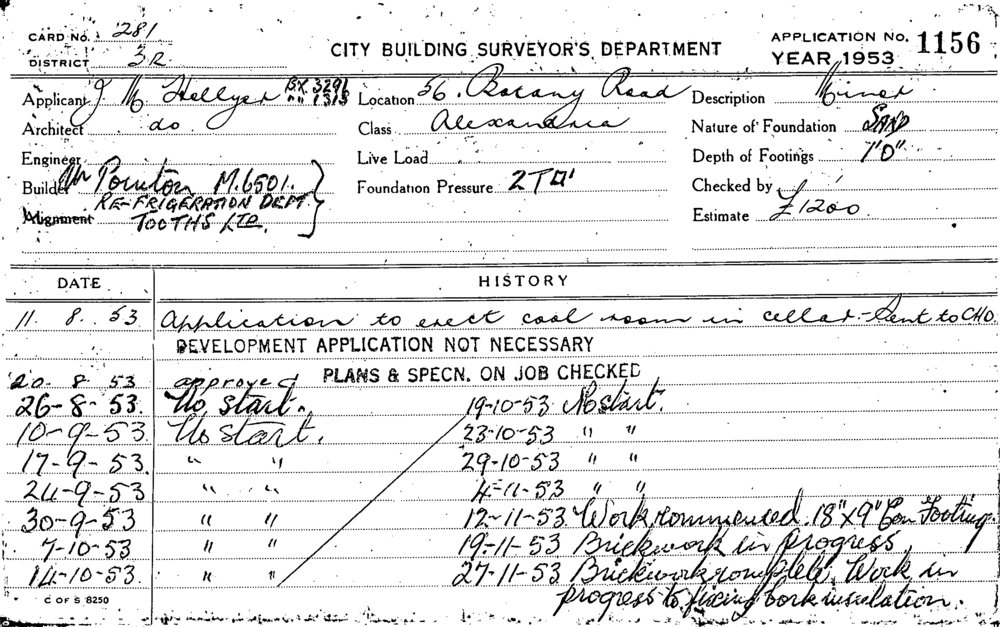 CARD No. 281
DISTRICT 3R
CITY BUILDING SURVEYOR'S DEPARTMENT
APPLICATION NO. 1156
YEAR 1953
Applicant J. M Hellyer BX 3291
" " 1315
Location 56. Botany Road
Description Minor
Architect do.
Class Alexandria
Nature of Foundation SAND
Engineer
Live Load
Depth of Footings 1'0"
Builder Mr Pointon M.6501.
RE-FRIGERATION DEPT.
Foundation Pressure 2T□'
Checked by
Alignment TOOTHS LTD.
Estimate £1200
DATE HISTORY
11. 8. 53 Application to erect cool room in cellar - Sent to CHO.
DEVELOPMENT APPLICATION NOT NECESSARY
20. 8. 53 approved PLANS & SPECN. ON JOB CHECKED
26-8-53. No start.
10-9-53. No start.
17-9-53. " "
24-9-53. " "
30-9-53 " "
7-10-53 " "
14-10-53. " "
19-10-53 No start.
23-10-53 " "
29-10-53 " "
4-11-53 " "
12-11-53 Work commenced. 18"x9" Con Footing.
19-11-53 Brickwork in progress
27-11-53 Brickwork complete. Work in
progress to fixing cork insulation.
C OF S 8250